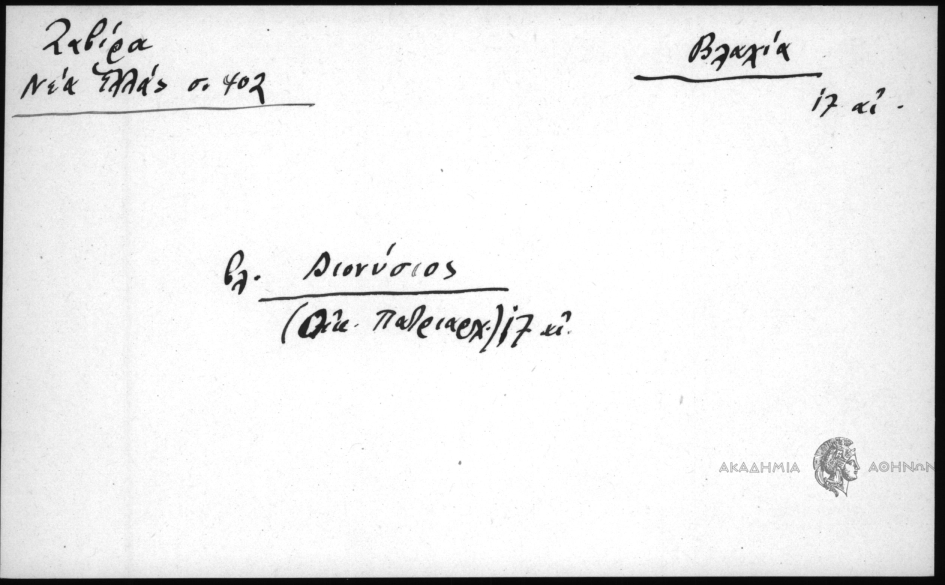 Ζαβίρα
Νέα Ἑλλάς σ. 402
Βλαχία
17 αἰ.
βλ. Διονύσιος
(Οἰκ. Πατριαρχ.) 17 αἰ.
ΑΚΑΔΗΜΙΑ ΑΘΗΝΩΝ